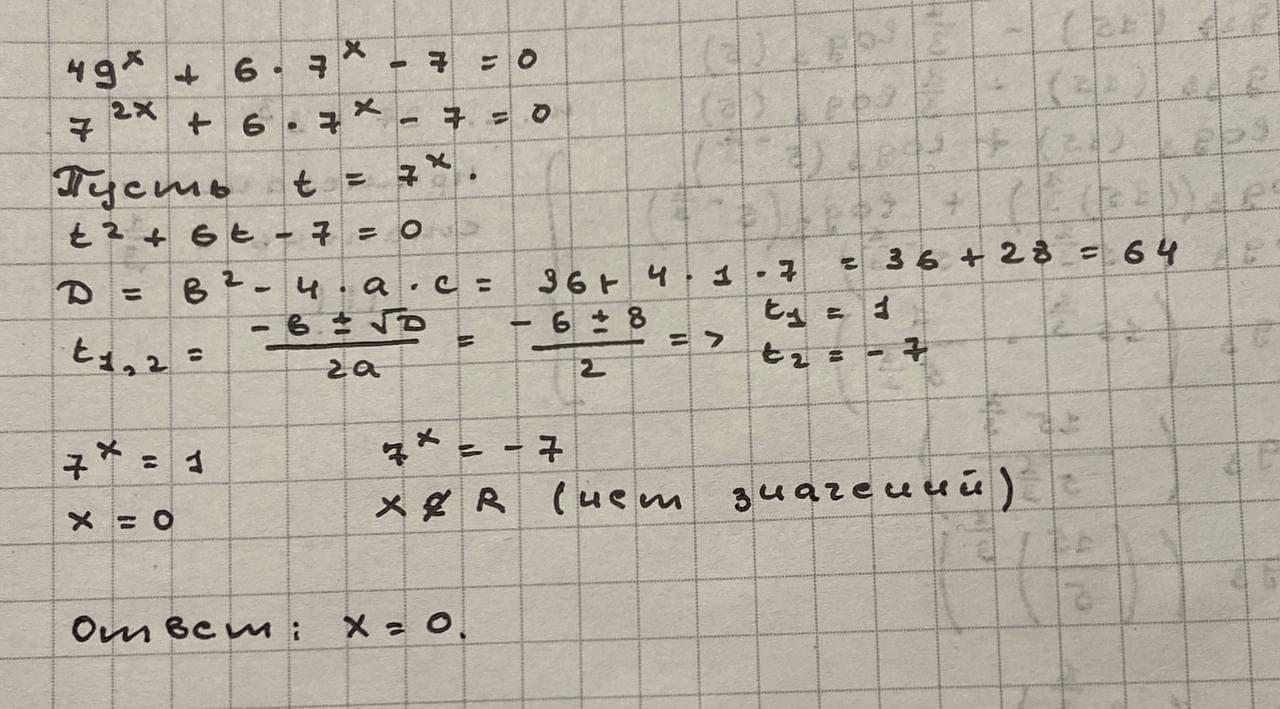 49ˣ + 6 · 7ˣ - 7 = 0
7²ˣ + 6 · 7ˣ - 7 = 0
Пусть t = 7ˣ.
t² + 6t - 7 = 0
D = в² - 4 · a · c = 36 + 4 · 1 · 7 = 36 + 28 = 64
t₁,₂ = (-в ± √D)/(2a) = (-6 ± 8)/2 => t₁ = 1
t₂ = -7
7ˣ = 1 7ˣ = -7
x = 0 x ∉ R (нет значений)
Ответ: x = 0.